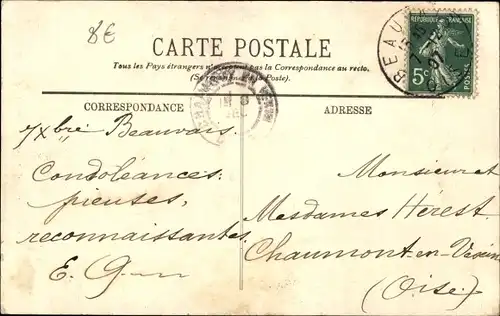 8€
CARTE POSTALE
Tous les Pays étrangers n'acceptent pas la Correspondance au recto.
(Se renseigner à la Poste).
RÉPUBLIQUE FRANÇAISE
5c
BEAUVAIS
OISE
CORRESPONDANCE
ADRESSE
7 Xbre Beauvais
Condoléances
pieuses,
reconnaissantes.
Monsieur et
Mesdames Hérest
Chaumont-en-Vexin
(Oise)